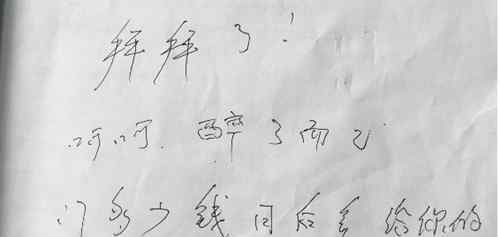 拜拜了!
呵呵.醉了而已
多少钱回后给你的